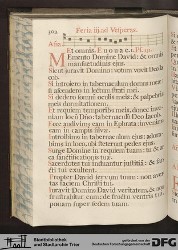 302 Feria iii. ad Vesperas.
Ant.
Et omnis. E u o u a e. Ps. 131.
Memento Domine David: & omnis
mansuetudinis ejus.
Sicut juravit Domino: votum vovit Deo Ja-
cob.
Si introiero in tabernaculum domus meæ: si
ascendero in lectum strati mei.
Si dedero somnum oculis meis: & palpebris
meis dormitationem.
Et requiem temporibus meis, donec inveniam
locum Domino: tabernaculum Deo Jacob.
Ecce audivimus eam in Ephrata: invenimus
eam in campis silvæ.
Introibimus in tabernaculum ejus: adora-
bimus in loco, ubi steterunt pedes ejus.
Surge Domine in requiem tuam: tu & ar-
ca sanctificationis tuæ.
Sacerdotes tui induantur justitiam: & sanc-
ti tui exultent.
Propter David servum tuum: non aver-
tas faciem Christi tui.
Juravit Dominus David veritatem, & non
frustrabitur eum: de fructu ventris tui
ponam super sedem tuam.
Stadtbibliothek
und Stadtarchiv Trier
Gefördert durch
DFG